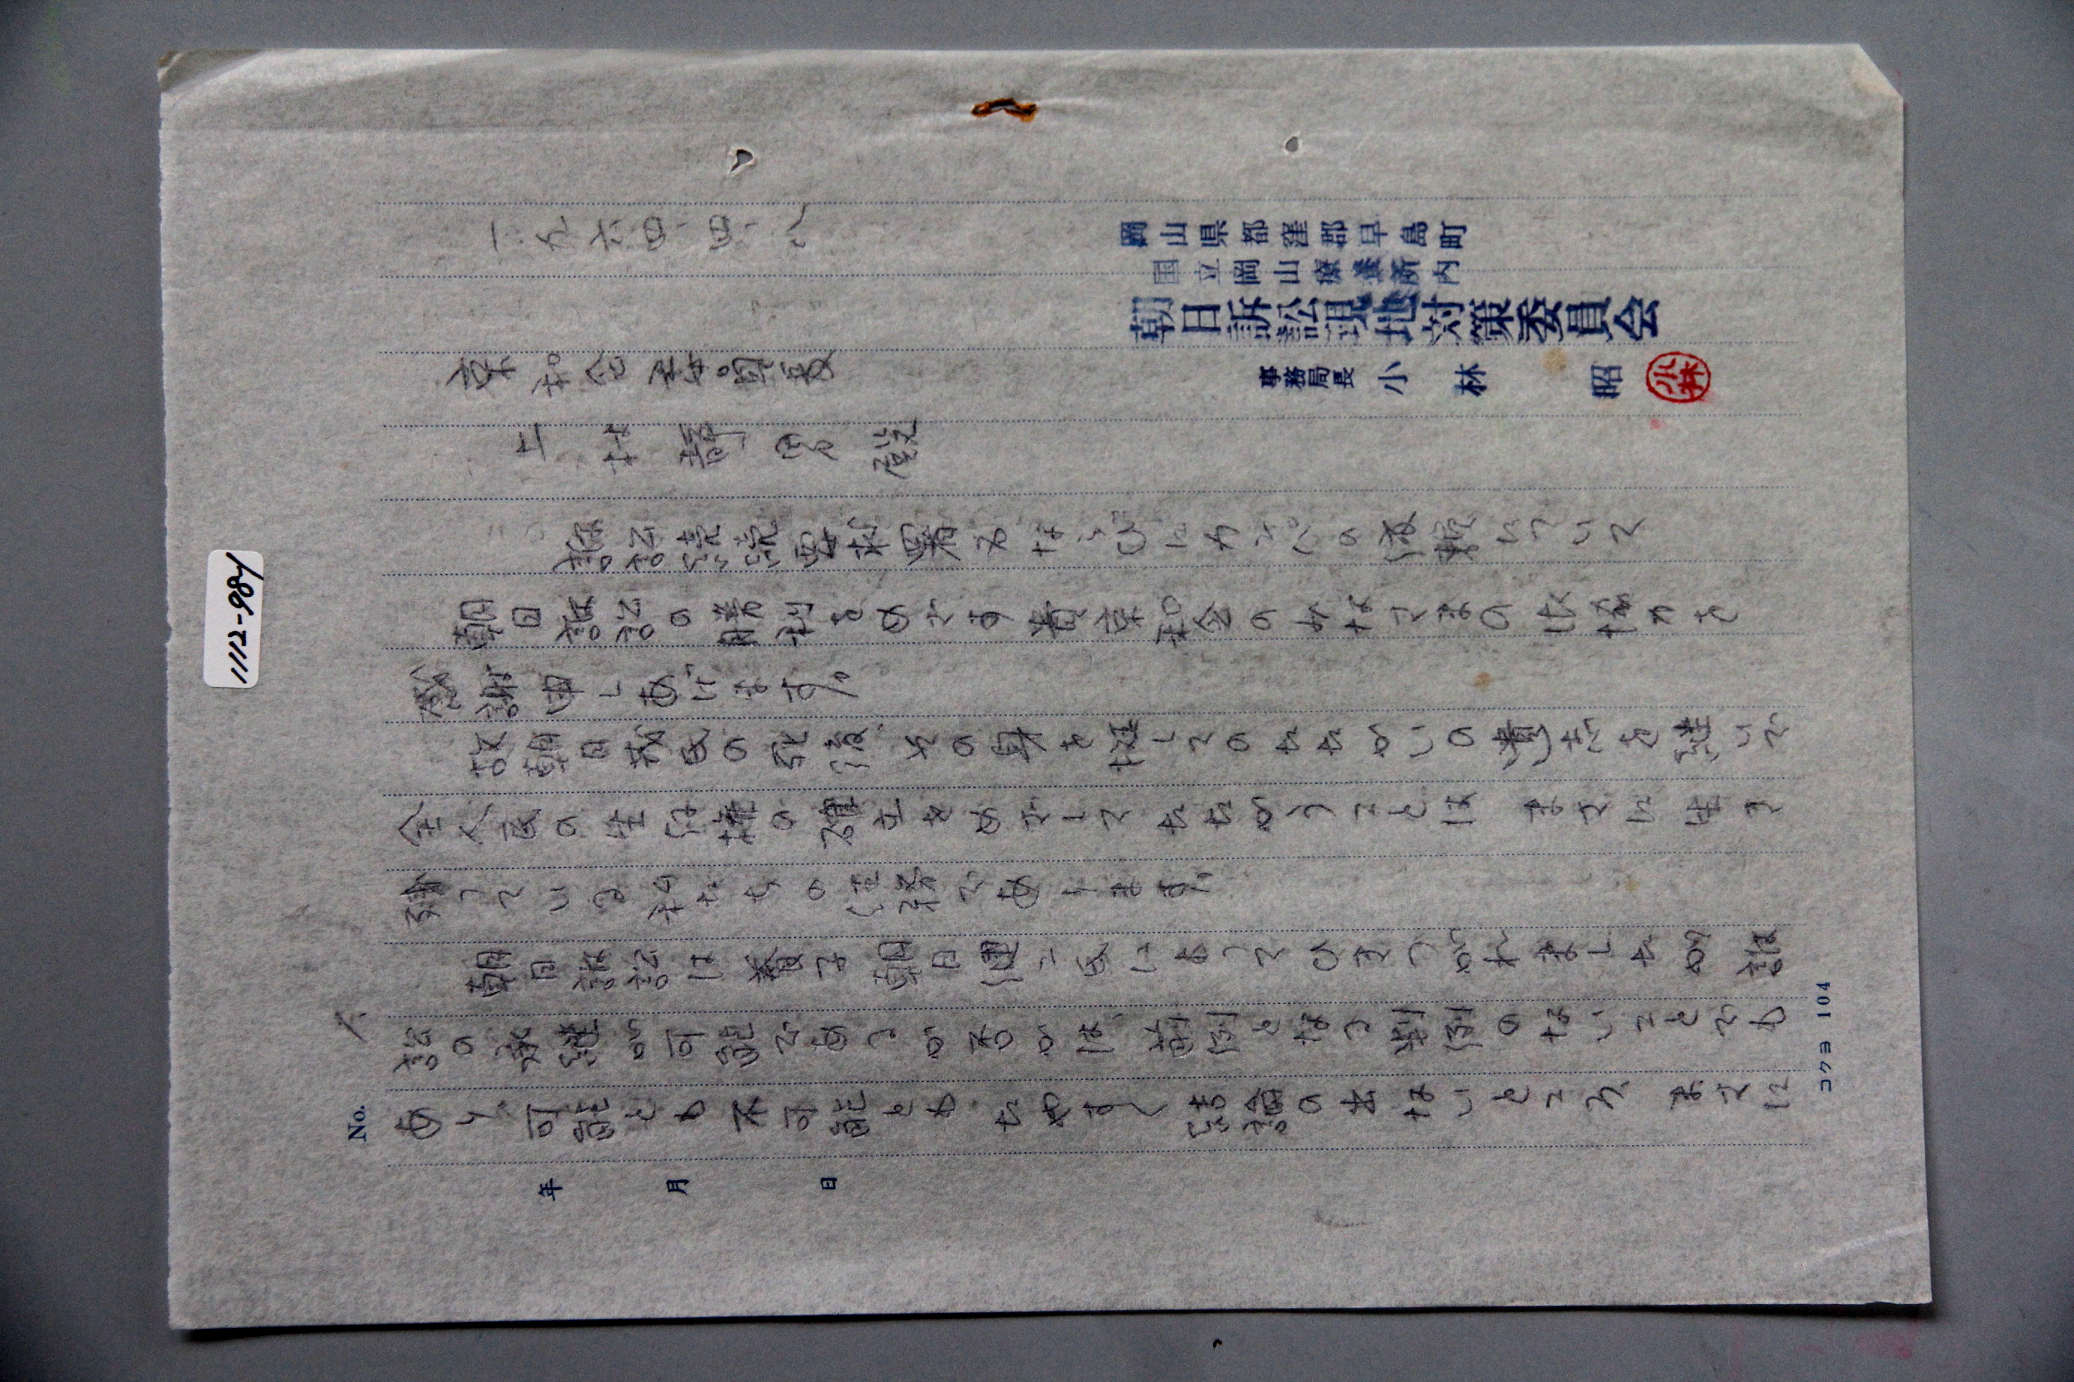 1112-984
一九六四・四・八
岡山県都窪郡早島町
国立岡山療養所内
朝日訴訟現地対策委員会
事務局長 小林 昭
小林
京都
訴訟承継要求署名ならびにカンパの依頼について
朝日訴訟の勝利をめざす貴 会のみなさまの御協力を
感謝申しあげます。
故朝日茂氏の死後、その身を挺してのたたかいの遺志を継いで
全人民の生存権の確立をめざしてたたかうことは まさに生き
残っている私たちの任務であります。
朝日訴訟は養子朝日健二氏によってひきつがれましたが 訴
訟の承継が可能であるか否かは、前例となる判例のないことでも
あり、可能とも不可能とも たやすく結論の出ないところ、まさに
No.
年 月 日
コクヨ 104